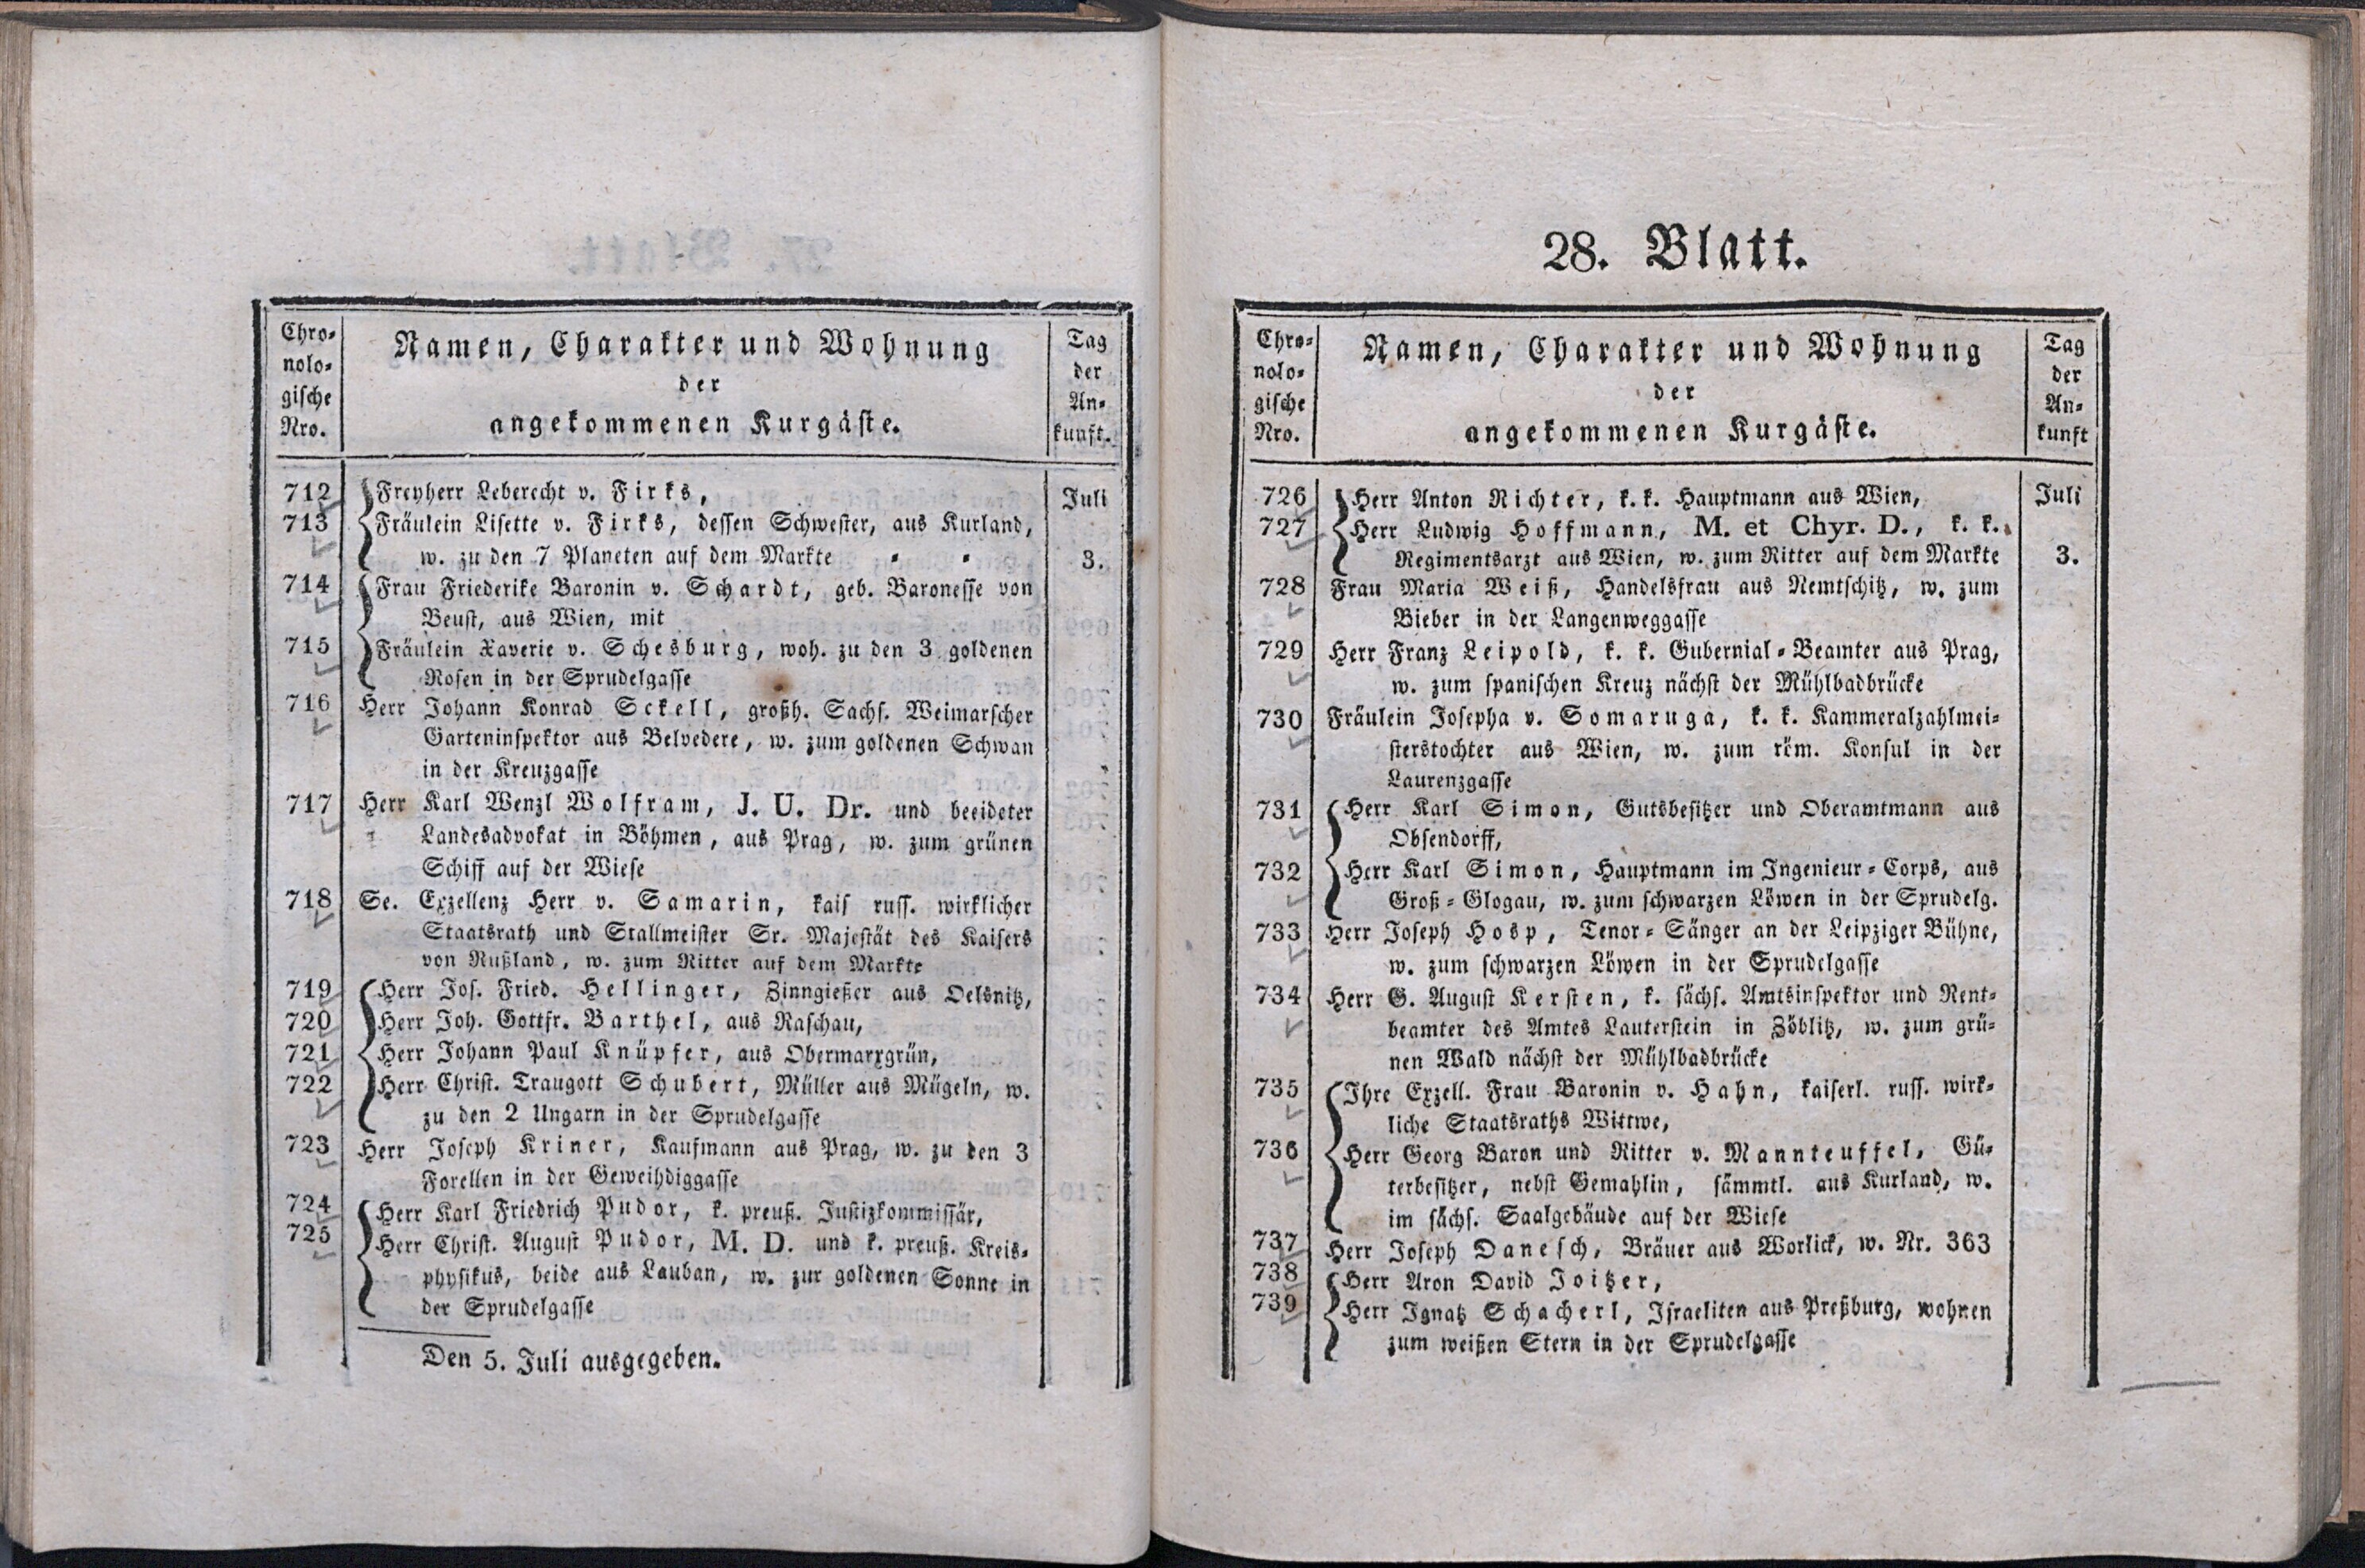 Chro-
nolo-
gische
Nro.
Namen, Charakter und Wohnung
der
angekommenen Kurgäste.
Tag
der
An-
kunft.
712 Freyherr Leberecht v. Firks, Juli
713 Fräulein Lisette v. Firks, dessen Schwester, aus Kurland,
w. zu den 7 Planeten auf dem Markte - - 3.
714 Frau Friederike Baronin v. Schardt, geb. Baronesse von
Beust, aus Wien, mit
715 Fräulein Xaverie v. Schesburg, woh. zu den 3 goldenen
Rosen in der Sprudelgasse
716 Herr Johann Konrad Sckell, großh. Sachs. Weimarscher
Garteninspektor aus Belvedere, w. zum goldenen Schwan
in der Kreuzgasse
717 Herr Karl Wenzl Wolfram, J. U. Dr. und beeideter
Landesadvokat in Böhmen, aus Prag, w. zum grünen
Schiff auf der Wiese
718 Se. Exzellenz Herr v. Samarin, kais russ. wirklicher
Staatsrath und Stallmeister Sr. Majestät des Kaisers
von Rußland, w. zum Ritter auf dem Markte
719 Herr Jos. Fried. Hellinger, Zinngießer aus Oelsnitz,
720 Herr Joh. Gottfr. Barthel, aus Raschau,
721 Herr Johann Paul Knüpfer, aus Obermarxgrün,
722 Herr Christ. Traugott Schubert, Müller aus Mügeln, w.
zu den 2 Ungarn in der Sprudelgasse
723 Herr Joseph Kriner, Kaufmann aus Prag, w. zu den 3
Forellen in der Geweihdiggasse
724 Herr Karl Friedrich Pudor, k. preuß. Justizkommissär,
725 Herr Christ. August Pudor, M. D. und k. preuß. Kreis-
physikus, beide aus Lauban, w. zur goldenen Sonne in
der Sprudelgasse
Den 5. Juli ausgegeben.
28. Blatt.
Chro-
nolo-
gische
Nro.
Namen, Charakter und Wohnung
der
angekommenen Kurgäste.
Tag
der
An-
kunft
726 Herr Anton Richter, k. k. Hauptmann aus Wien, Juli
727 Herr Ludwig Hoffmann, M. et Chyr. D., k. k.
Regimentsarzt aus Wien, w. zum Ritter auf dem Markte 3.
728 Frau Maria Weiß, Handelsfrau aus Nemtschitz, w. zum
Bieber in der Langenweggasse
729 Herr Franz Leipold, k. k. Gubernial-Beamter aus Prag,
w. zum spanischen Kreuz nächst der Mühlbadbrücke
730 Fräulein Josepha v. Somaruga, k. k. Kammeralzahlmei-
sterstochter aus Wien, w. zum röm. Konsul in der
Laurenzgasse
731 Herr Karl Simon, Gutsbesitzer und Oberamtmann aus
Obsendorff,
732 Herr Karl Simon, Hauptmann im Ingenieur-Corps, aus
Groß-Glogau, w. zum schwarzen Löwen in der Sprudelg.
733 Herr Joseph Hosp, Tenor-Sänger an der Leipziger Bühne,
w. zum schwarzen Löwen in der Sprudelgasse
734 Herr G. August Kersten, k. sächs. Amtsinspektor und Rent-
beamter des Amtes Lauterstein in Zöblitz, w. zum grü-
nen Wald nächst der Mühlbadbrücke
735 Ihre Exzell. Frau Baronin v. Hahn, kaiserl. russ. wirk-
liche Staatsraths Wittwe,
736 Herr Georg Baron und Ritter v. Mannteuffel, Gü-
terbesitzer, nebst Gemahlin, sämmtl. aus Kurland, w.
im sächs. Saalgebäude auf der Wiese
737 Herr Joseph Danesch, Bräuer aus Worlick, w. Nr. 363
738 Herr Aron David Joitzer,
739 Herr Ignatz Schacherl, Israeliten aus Preßburg, wohnen
zum weißen Stern in der Sprudelgasse